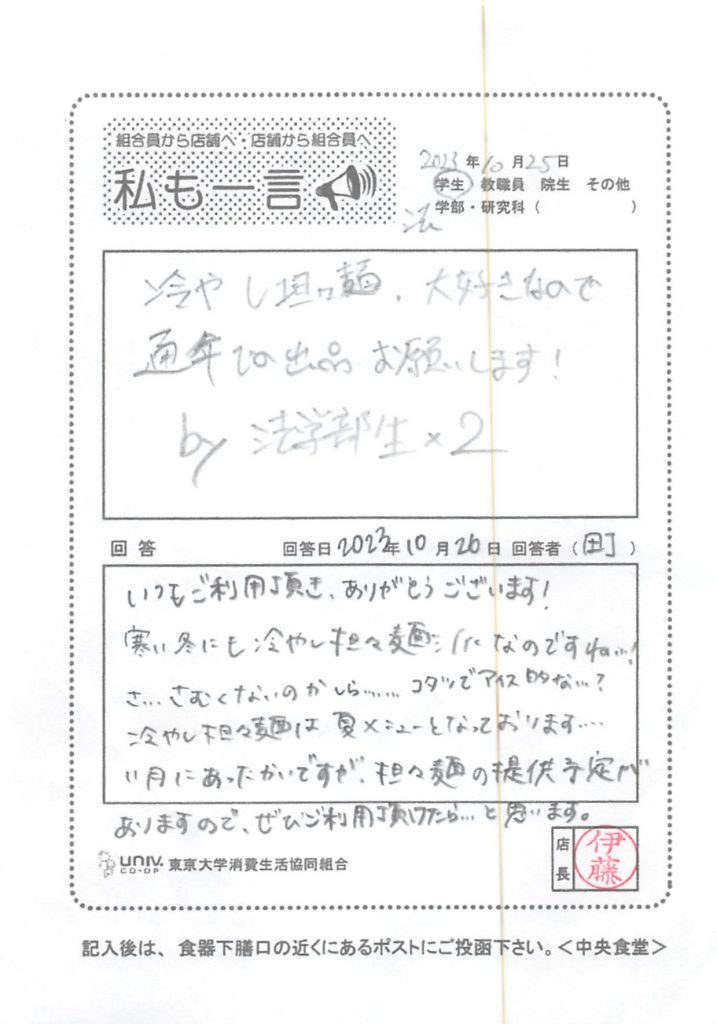 組合員から店舗へ・店舗から組合員へ
私も一言
2023年10月25日
学生 教職員 院生 その他
学部・研究科( )
法
冷やし担々麺、大好きなので
通年での出品お願いします!
by 法学部生×2
回答 回答日2023年10月26日 回答者(田丁)
いつもご利用頂き、ありがとうございます!
寒い冬にも冷やし担々麺 なのですね…!
さ…さむくないのかしら…… コタツでアイス的な…?
冷やし担々麺は夏メニューとなっております…
11月にあったかいですが、担々麺の提供予定が
ありますので、ぜひご利用頂けたら…と思います。
UNIV. CO-OP 東京大学消費生活協同組合
店長 伊藤
記入後は、食器下膳口の近くにあるポストにご投函下さい。<中央食堂>